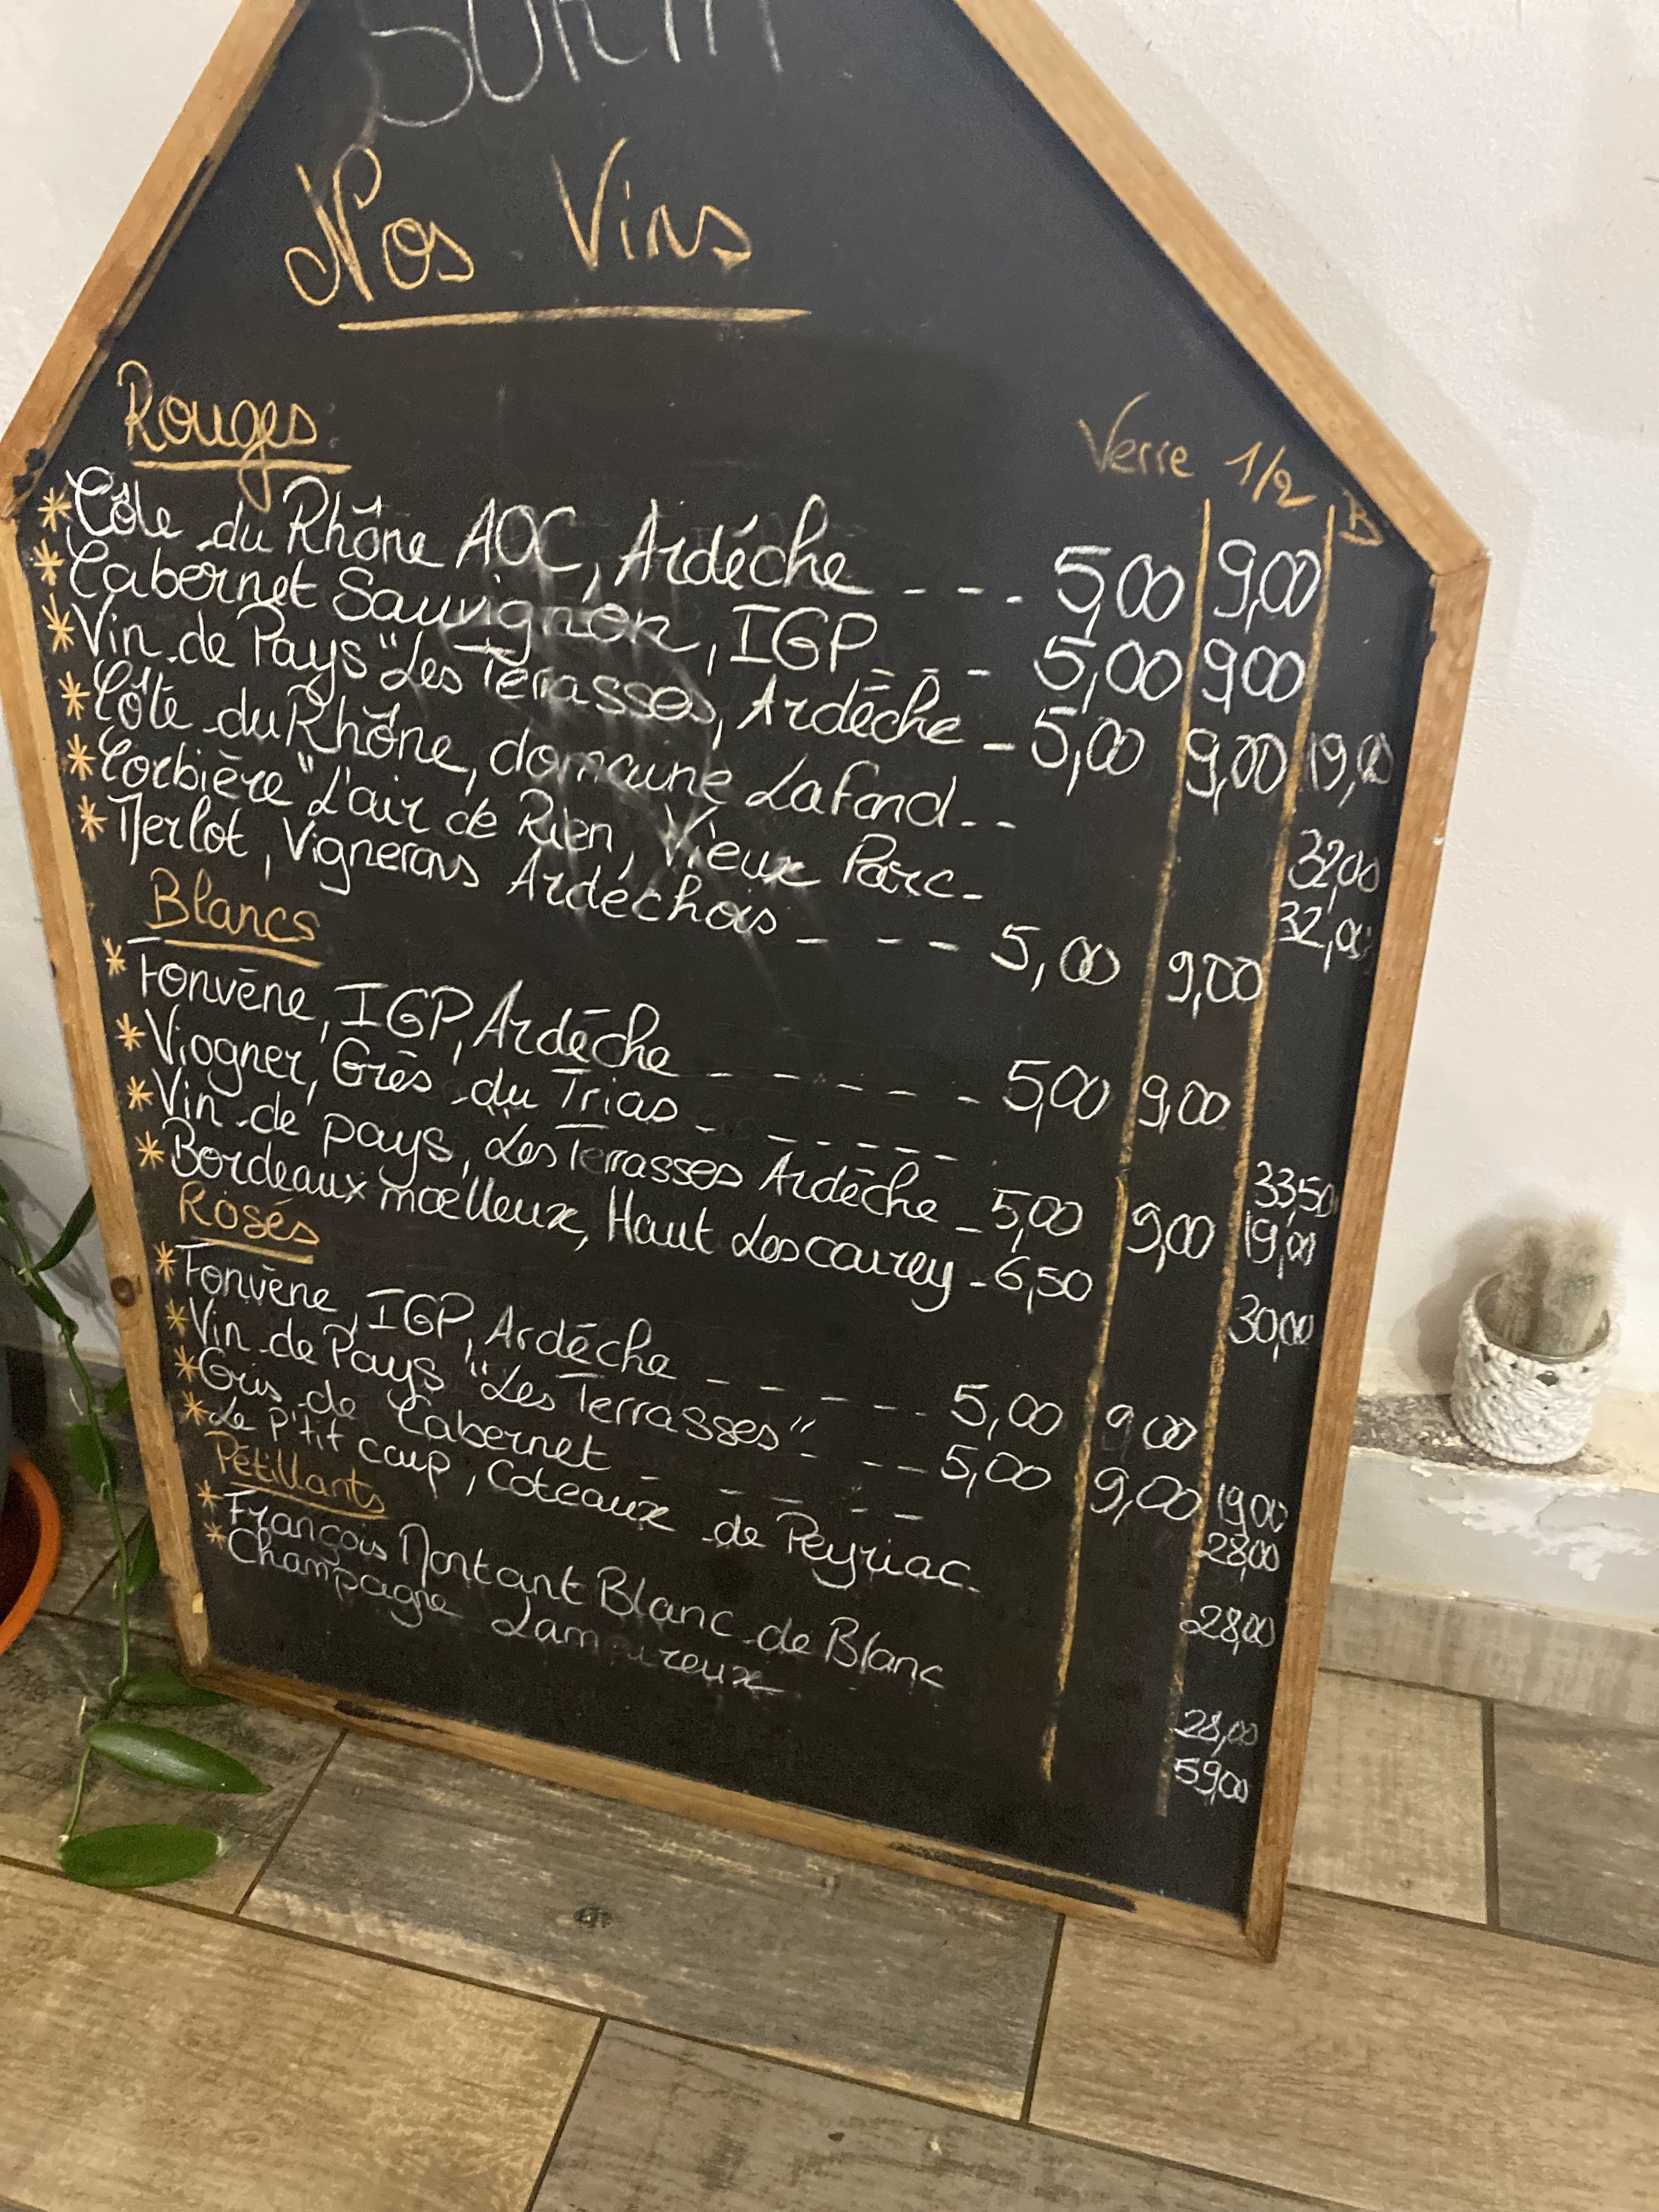 Nos Vins
Rouges Verre 1/2 B
* Côte du Rhône AOC, Ardéche --- 5,00 9,00
* Cabernet Sauvignon, IGP --- 5,00 9,00
* Vin de Pays "Les Terrasses, Ardéche - 5,00 9,00 19,00
* Côte du Rhône, domaine Lafond -- 32,00
* Corbière "L'air de Rien, Vieux Parc - 32,00
* Merlot, Vignerons Ardéchois --- 5,00 9,00
Blancs
* Fonvène, IGP, Ardéche ----- 5,00 9,00
* Viogner, Grès du Trias ----- 33,50
* Vin de pays, Les Terrasses Ardéche - 5,00 9,00 19,00
* Bordeaux moelleux, Haut Lescaurey - 6,50 30,00
Rosés
* Fonvène, IGP, Ardéche ----- 5,00 9,00
* Vin de Pays "Les Terrasses" --- 5,00 9,00 19,00
* Gris de Cabernet ----- 28,00
* Le P'tit coup, Coteaux de Peyriac - 28,00
Pétillants
* François Montant Blanc de Blanc 28,00
* Champagne Lamoureux 59,00